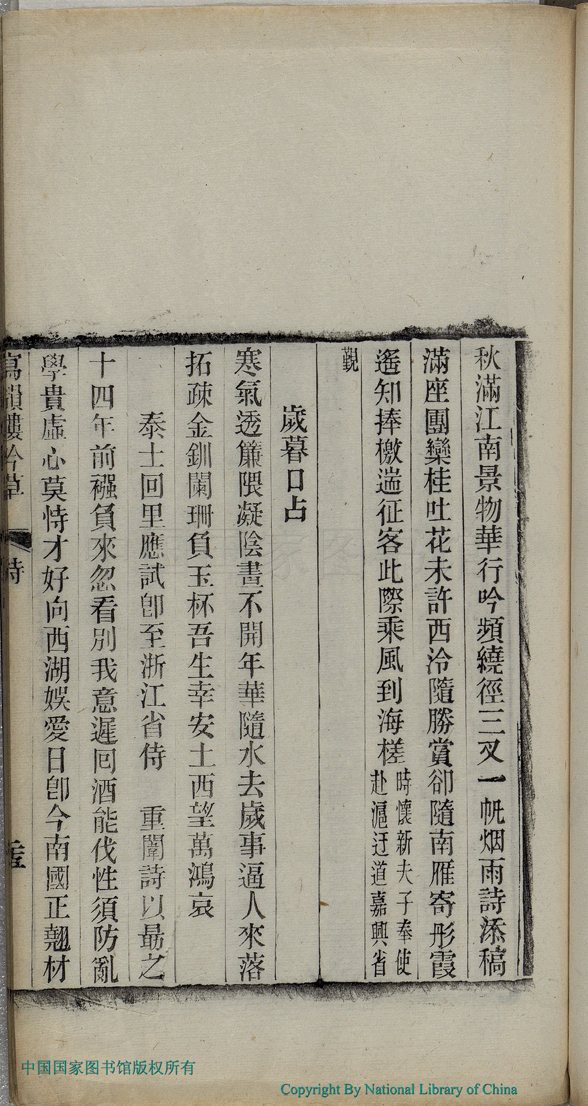 秋滿江南景物華行吟頻繞徑三叉一帆烟雨詩添稿
滿座團欒桂吐花未許西泠隨勝賞卻隨南雁寄彤霞
遙知捧檄遄征客此際乘風到海槎時懷新夫子奉使
赴滬迂道嘉興省
覲
歲暮口占
寒氣透簾隈凝陰晝不開年華隨水去歲事逼人來落
拓疎金釧闌珊負玉杯吾生幸安土西望萬鴻哀
泰士回里應試卽至浙江省侍 重闈詩以勗之
十四年前襁負來忽看別我意遲回酒能伐性須防亂
學貴虛心莫恃才好向西湖娛愛日卽今南國正翹材
寫韻樓吟草
詩
中国国家图书馆版权所有
Copyright By National Library of China